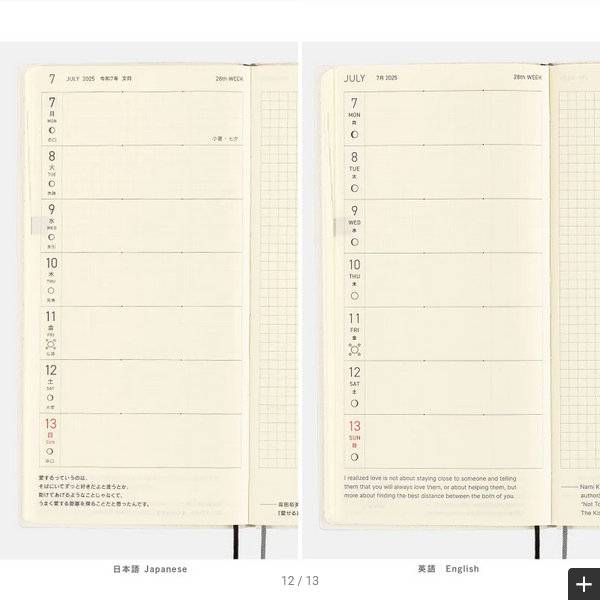 7 JULY 2025 令和7年 文月 28th WEEK
7
月
MON
赤口
小暑・七夕
8
火
TUE
先勝
9
水
WED
友引
10
木
THU
先負
11
金
FRI
仏滅
12
土
SAT
大安
13
日
SUN
赤口
愛するっていうのは、
そばにいてずっと好きだよと言うとか、
助けてあげるようなことじゃなくて、
うまく愛する距離を探ることだと思ったんです。
JULY 7月 2025 28th WEEK
7
MON
月
8
TUE
火
9
WED
水
10
THU
木
11
FRI
金
12
SAT
土
13
SUN
日
I realized love is not about staying close to someone and telling
them that you will always love them, or about helping them, but
more about finding the best distance between the both of you.
Nami K
author
"Not To
The Kis
日本語 Japanese
英語 English
12 / 13